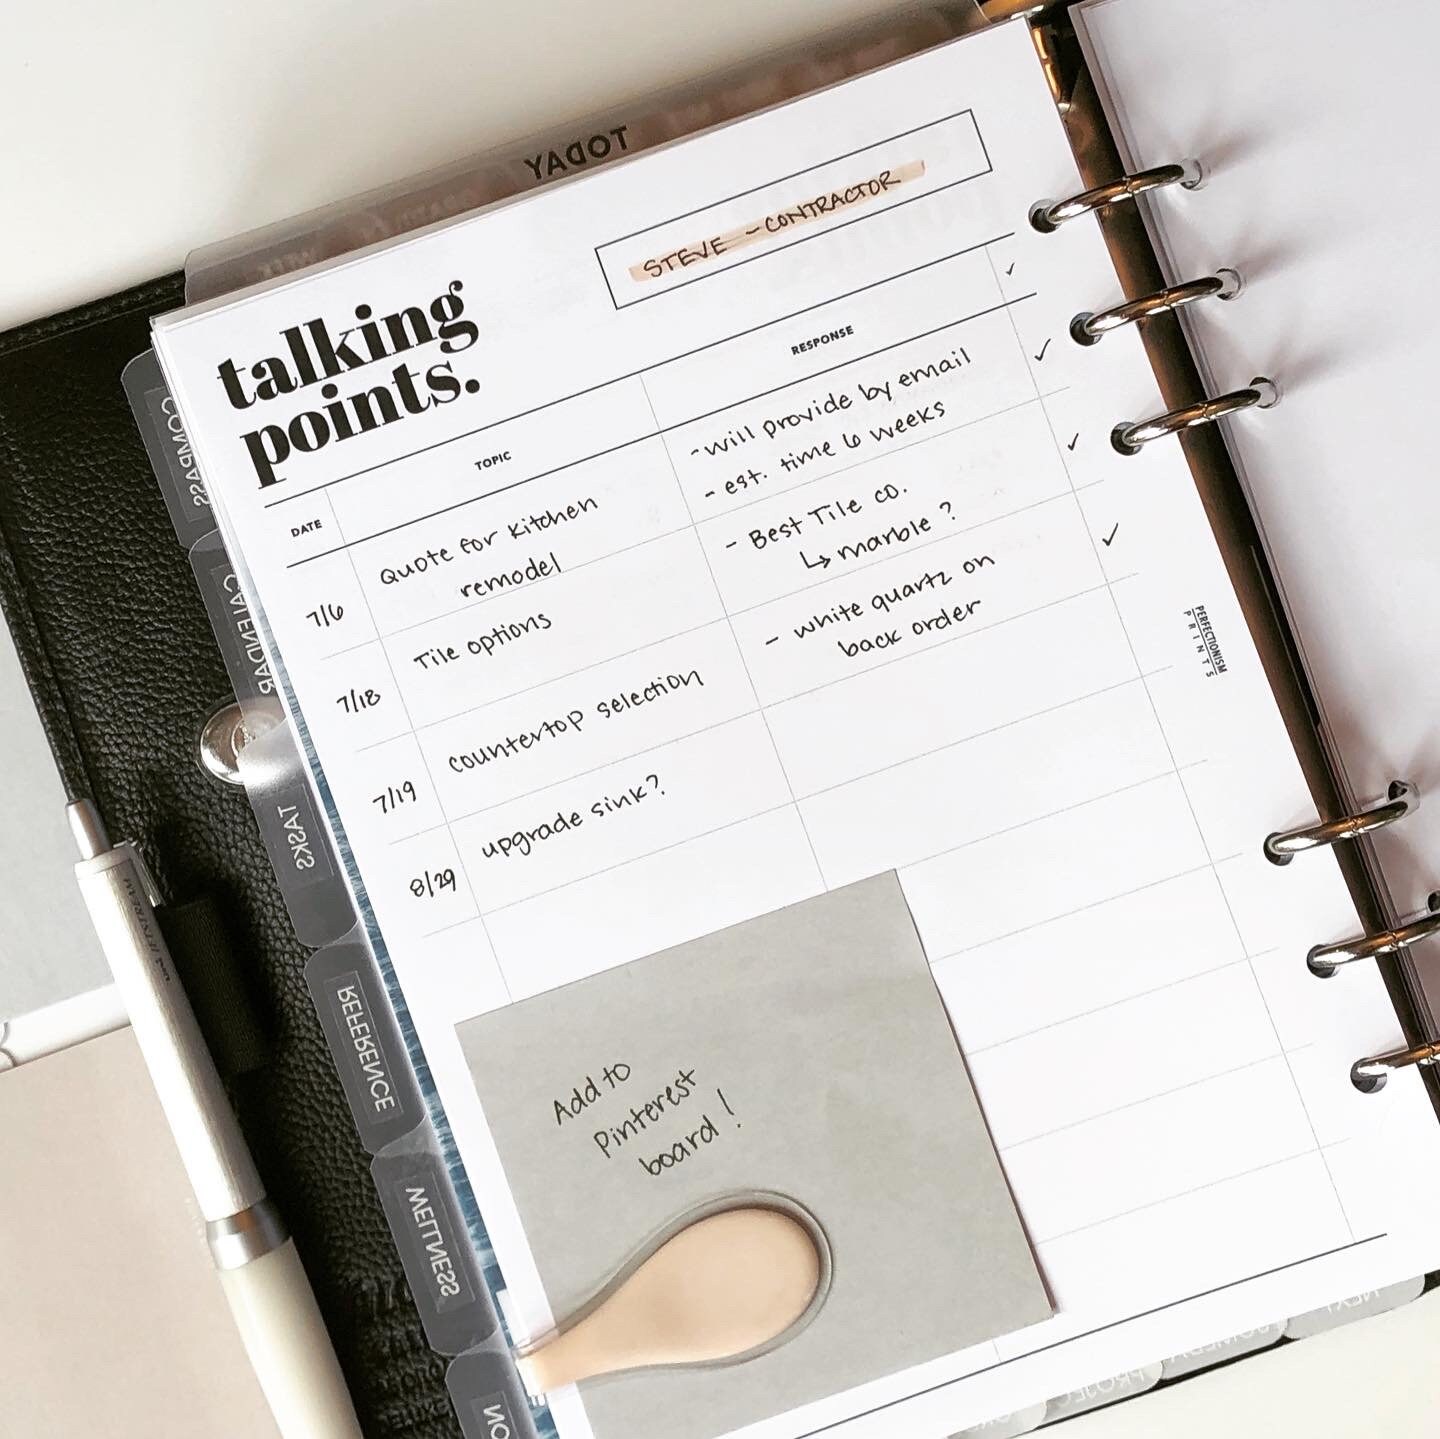 TODAY
talking
points.
STEVE - CONTRACTOR
DATE
TOPIC
RESPONSE
✓
7/6
Quote for Kitchen
remodel
- will provide by email
- est. time 6 weeks
✓
7/18
Tile options
- Best Tile co.
↳ marble ?
✓
7/19
countertop selection
- white quartz on
back order
✓
8/29
upgrade sink?
Add to
Pinterest
board!
PERFECTIONISM
PRINTS
COMPASS
CALENDAR
TASKS
REFERENCE
WELLNESS
uni JETSTREAM
NEXT